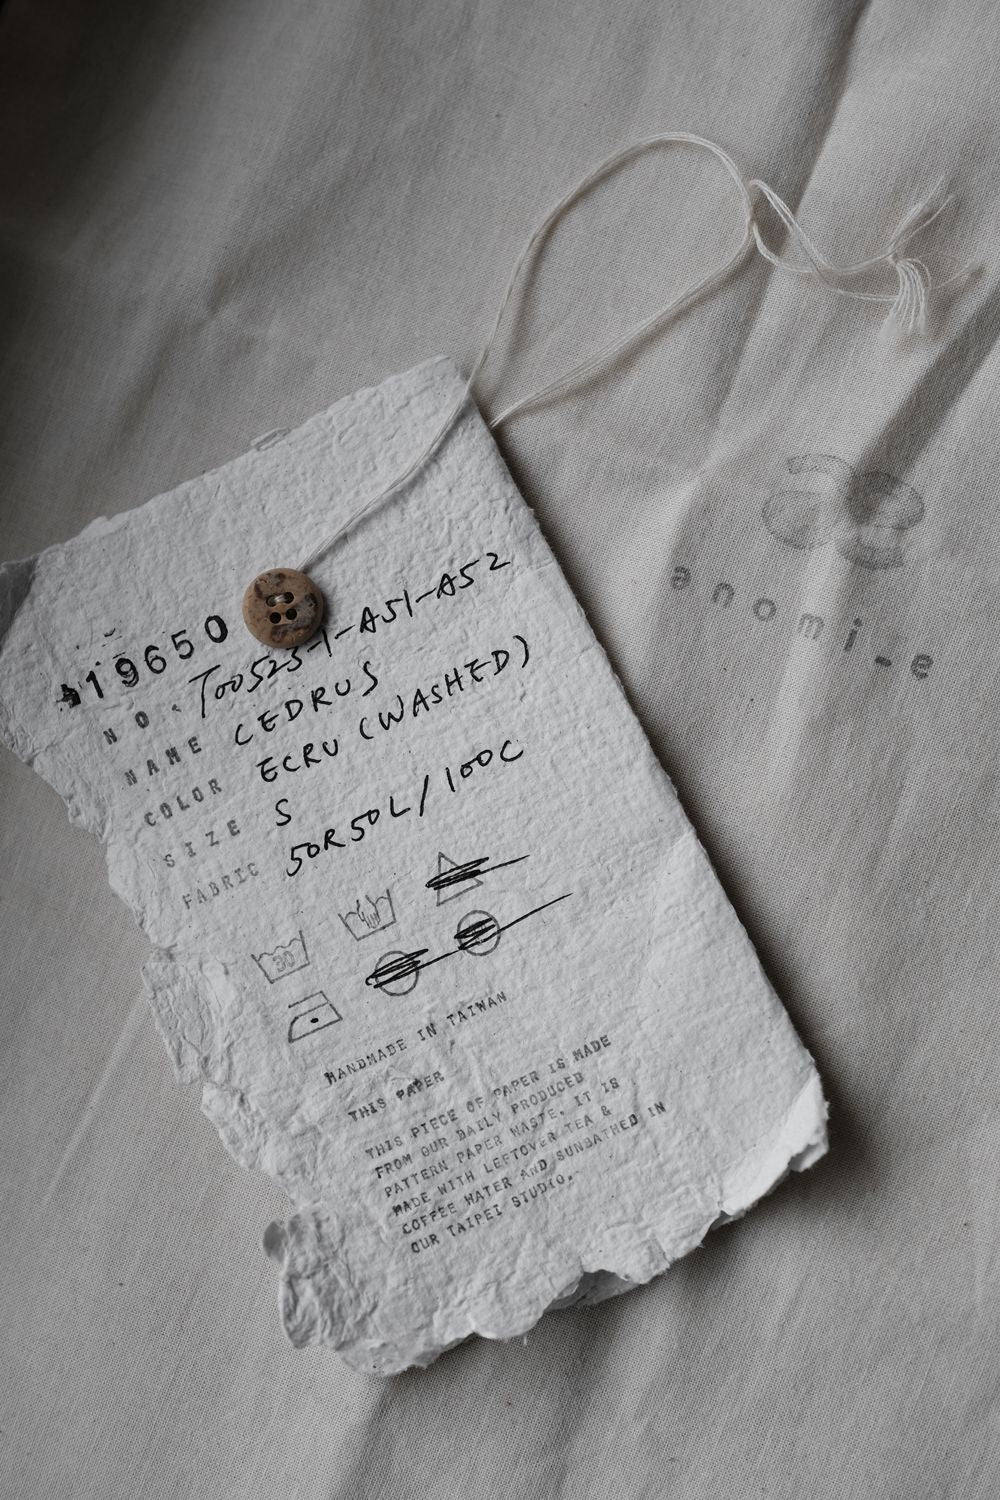 19650
NO. T00525-1-A51-A52
NAME CEDRUS
COLOR ECRU (WASHED)
SIZE S
FABRIC 50R50L/100C
30
HANDMADE IN TAIWAN
THIS PAPER
THIS PIECE OF PAPER IS MADE
FROM OUR DAILY PRODUCED
PATTERN PAPER WASTE. IT IS
MADE WITH LEFTOVER TEA &
COFFEE WATER AND SUNBATHED IN
OUR TAIPEI STUDIO.
anomi-e